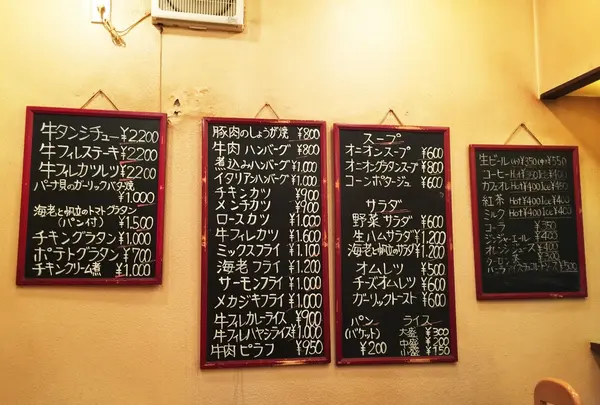 牛タンシチュー ¥2200
牛フィレステーキ ¥2200
牛フィレカツレツ ¥2200
バーナ貝のガーリックバター焼
¥1.000
海老と帆立のトマトグラタン
(パン付) ¥1.500
チキングラタン ¥1.000
ポテトグラタン ¥700
チキンクリーム煮 ¥1.000
豚肉のしょうが焼 ¥800
牛肉ハンバーグ ¥800
煮込みハンバーグ ¥1.000
イタリアンハンバーグ ¥1.000
チキンカツ ¥900
メンチカツ ¥900
ロースカツ ¥1.000
牛フィレカツ ¥1.600
ミックスフライ ¥1.100
海老フライ ¥1.200
サーモンフライ ¥1.000
メカジキフライ ¥1.000
牛フィレカレーライス ¥900
牛フィレハヤシライス ¥1.000
牛肉ピラフ ¥950
スープ
オニオンスープ ¥600
オニオングラタンスープ ¥800
コーンポタージュ ¥600
サラダ
野菜サラダ ¥600
生ハムサラダ ¥1.200
海老と帆立のサラダ ¥1.200
オムレツ ¥500
チーズオムレツ ¥600
ガーリックトースト ¥600
パン ライス
(バケット) 大盛 ¥300
¥200 中盛 ¥200
小盛 ¥150
生ビール (小)¥350 (中)¥550
コーヒー Hot ¥350 Ice ¥400
カフェオレ Hot ¥400 Ice ¥450
紅茶 Hot ¥400 Ice ¥400
ミルク Hot ¥400 Ice ¥400
コーラ ¥350
ジンジャーエール ¥400
オレンジジュース ¥400
ウーロン茶 ¥300
¥500